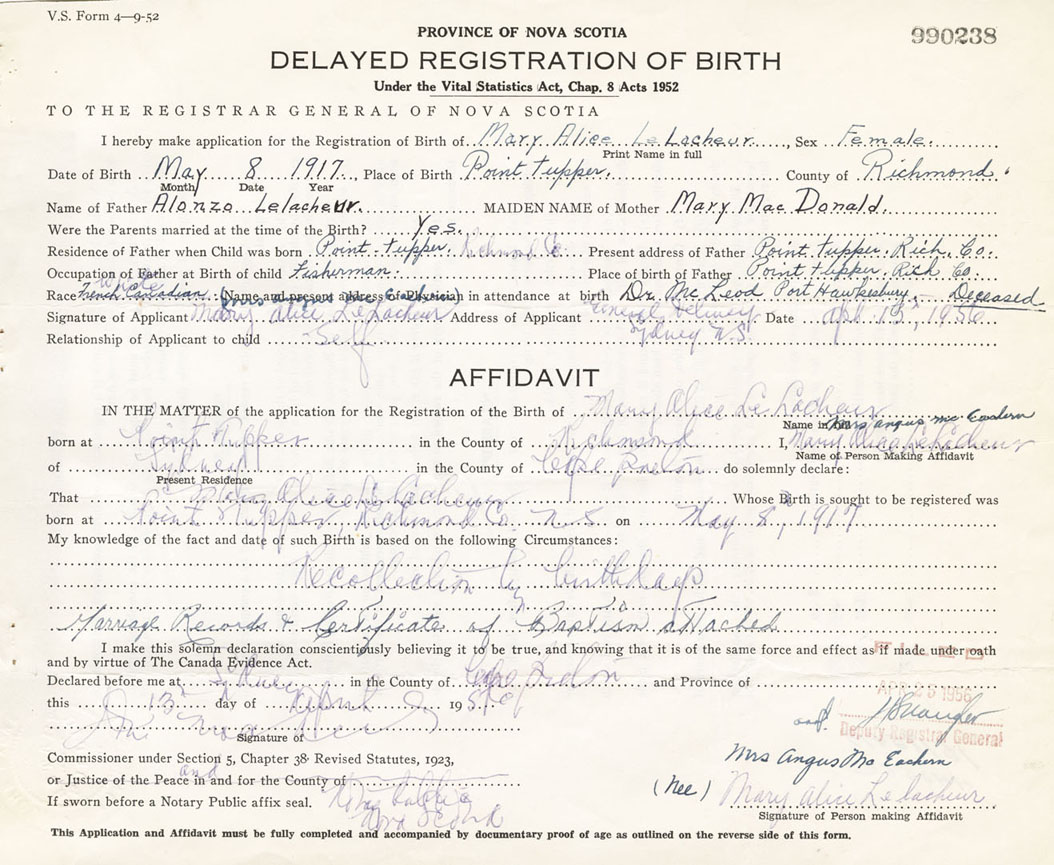 V.S. Form 4—9-52
PROVINCE OF NOVA SCOTIA
990238
DELAYED REGISTRATION OF BIRTH
Under the Vital Statistics Act, Chap. 8 Acts 1952
TO THE REGISTRAR GENERAL OF NOVA SCOTIA
I hereby make application for the Registration of Birth of Mary Alice Le Lacheur, Sex Female.
Print Name in full
Date of Birth May 8 1917, Place of Birth Point Tupper. County of Richmond.
Month Date Year
Name of Father Alonzo Lelacheur. MAIDEN NAME of Mother Mary Mac Donald.
Were the Parents married at the time of the Birth? Yes.
Residence of Father when Child was born Point Tupper. Richmond Co. Present address of Father Point Tupper. Rich. Co.
Occupation of Father at Birth of child Fisherman. Place of birth of Father Point Tupper, Rich Co
White
Race French Canadian (Name and present address of Physician) in attendance at birth Dr. McLeod Port Hawkesbury, — Deceased
Signature of Applicant Mary Alice LeLacheur Address of Applicant General Delivery Date Apl. 13, 1956
Relationship of Applicant to child Self Sydney N.S.
AFFIDAVIT
IN THE MATTER of the application for the Registration of the Birth of Mary Alice Le Lacheur
Name in full Mrs Angus Mc Eachern
born at Point Tupper in the County of Richmond I, Mary Alice LeLacheur
Name of Person Making Affidavit
of Sydney in the County of Cape Breton do solemnly declare:
Present Residence
That Mary Alice Le Lacheur Whose Birth is sought to be registered was
born at Point Tupper, Richmond Co. N.S. on May 8, 1917
My knowledge of the fact and date of such Birth is based on the following Circumstances:
Recollection by birthdays
Marriage Records & Certificate of Baptism attached
I make this solemn declaration conscientiously believing it to be true, and knowing that it is of the same force and effect as if made under oath
and by virtue of The Canada Evidence Act.
FILED
Declared before me at Sydney in the County of Cape Breton and Province of
APR 23 1956
this 13 day of April 1956
and
Deputy Registrar General
Signature of
Mrs Angus Mc Eachern
Commissioner under Section 5, Chapter 38 Revised Statutes, 1923,
or Justice of the Peace in and for the County of
and
(Nee) Mary Alice Lelacheur.
If sworn before a Notary Public affix seal.
Nova Scotia
Signature of Person making Affidavit
This Application and Affidavit must be fully completed and accompanied by documentary proof of age as outlined on the reverse side of this form.